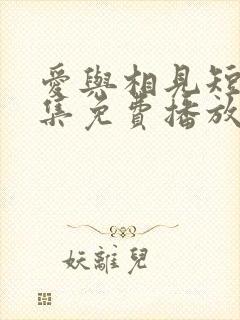 愛與相見短
集免費播放
妖離兒